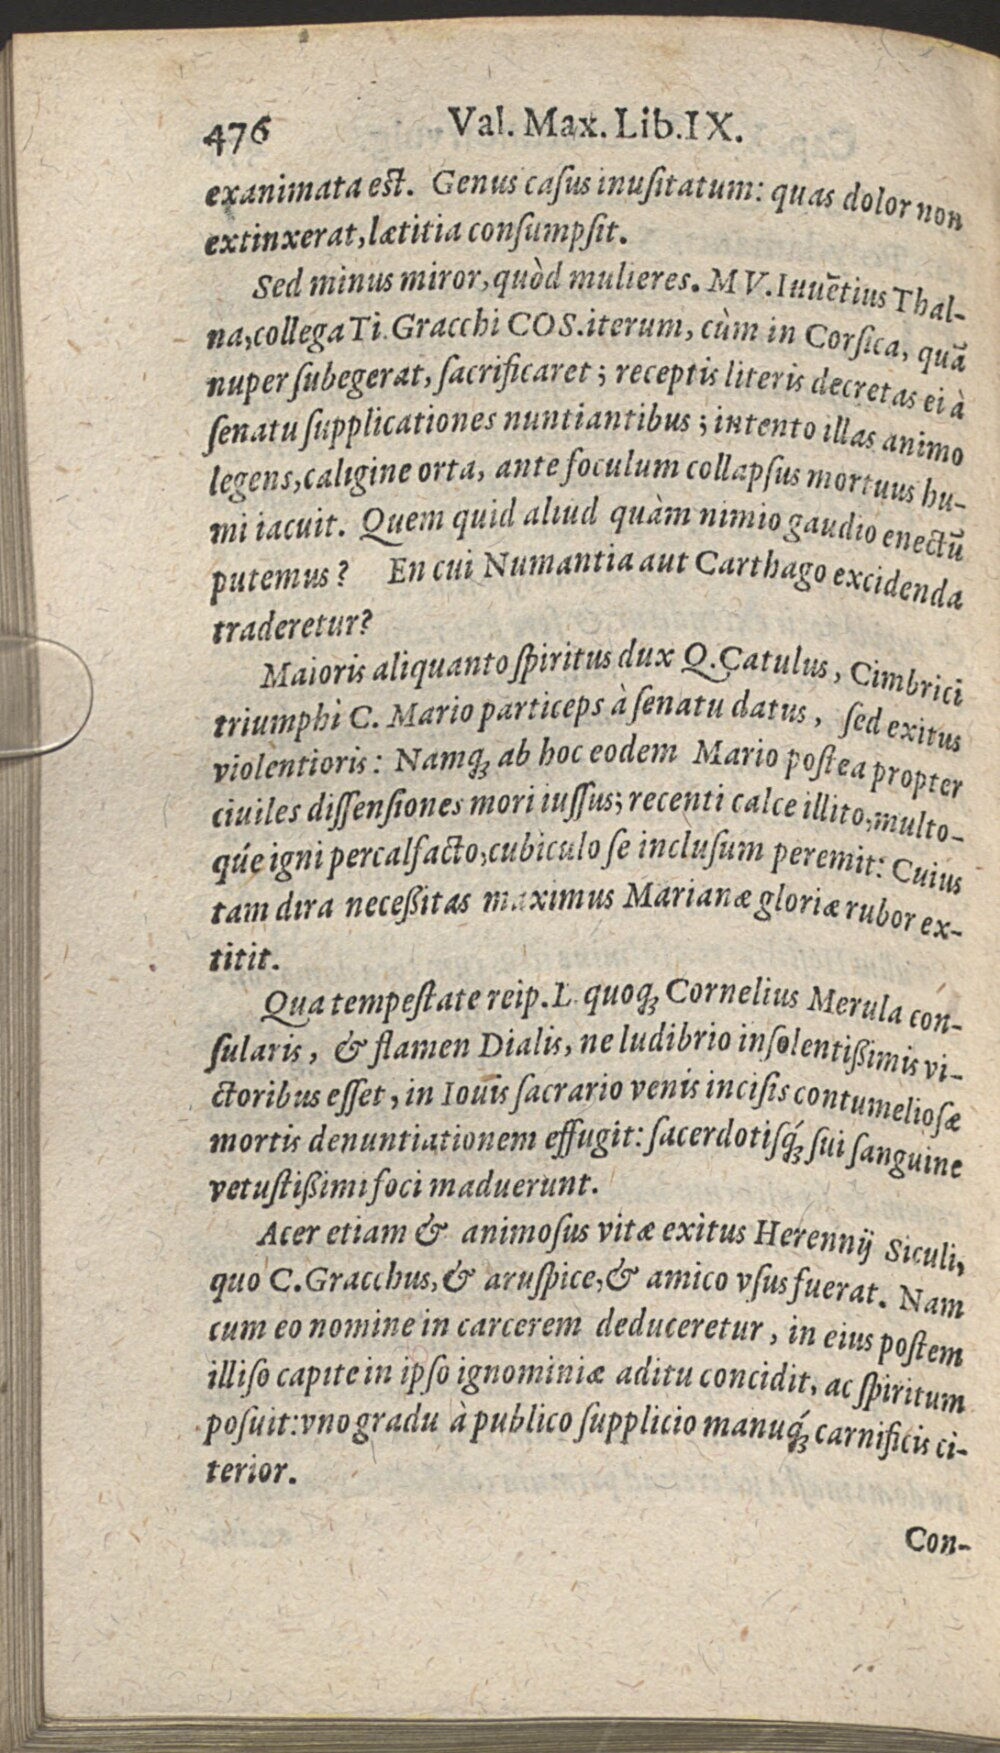 476 Val. Max. Lib. IX.
exanimata est. Genus casus inusitatum: quas dolor non
extinxerat, lætitia consumpsit.
Sed minus miror, quòd mulieres. M V. Iuuẽtius Thal-
na, collega Ti. Gracchi COS. iterum, cùm in Corsica, quã
nuper subegerat, sacrificaret; receptis literis decretas ei à
senatu supplicationes nuntiantibus; intento illas animo
legens, caligine orta, ante foculum collapsus mortuus hu-
mi iacuit. Quem quid aliud quàm nimio gaudio enectũ
putemus? En cui Numantia aut Carthago excidenda
traderetur?
Maioris aliquanto spiritus dux Q. Catulus, Cimbrici
triumphi C. Mario particeps à senatu datus, sed exitus
violentioris: Namq; ab hoc eodem Mario postea propter
ciuiles dissensiones mori iussus; recenti calce illito, multo-
qúe igni percalfacto, cubiculo se inclusum peremit: Cuius
tam dira neceßitas maximus Marianæ gloriæ rubor ex-
titit.
Qua tempestate reip. L. quoq; Cornelius Merula con-
sularis, & flamen Dialis, ne ludibrio insolentißimis vi-
ctoribus esset, in Iouis sacrario venis incisis contumeliosæ
mortis denuntiationem effugit: sacerdotisq́; sui sanguine
vetustißimi foci maduerunt.
Acer etiam & animosus vitæ exitus Herennij Siculi,
quo C. Gracchus, & aruspice, & amico vsus fuerat. Nam
cum eo nomine in carcerem deduceretur, in eius postem
illiso capite in ipso ignominiæ aditu concidit, ac spiritum
posuit: vno gradu à publico supplicio manuq́; carnificis ci-
terior.
Con-